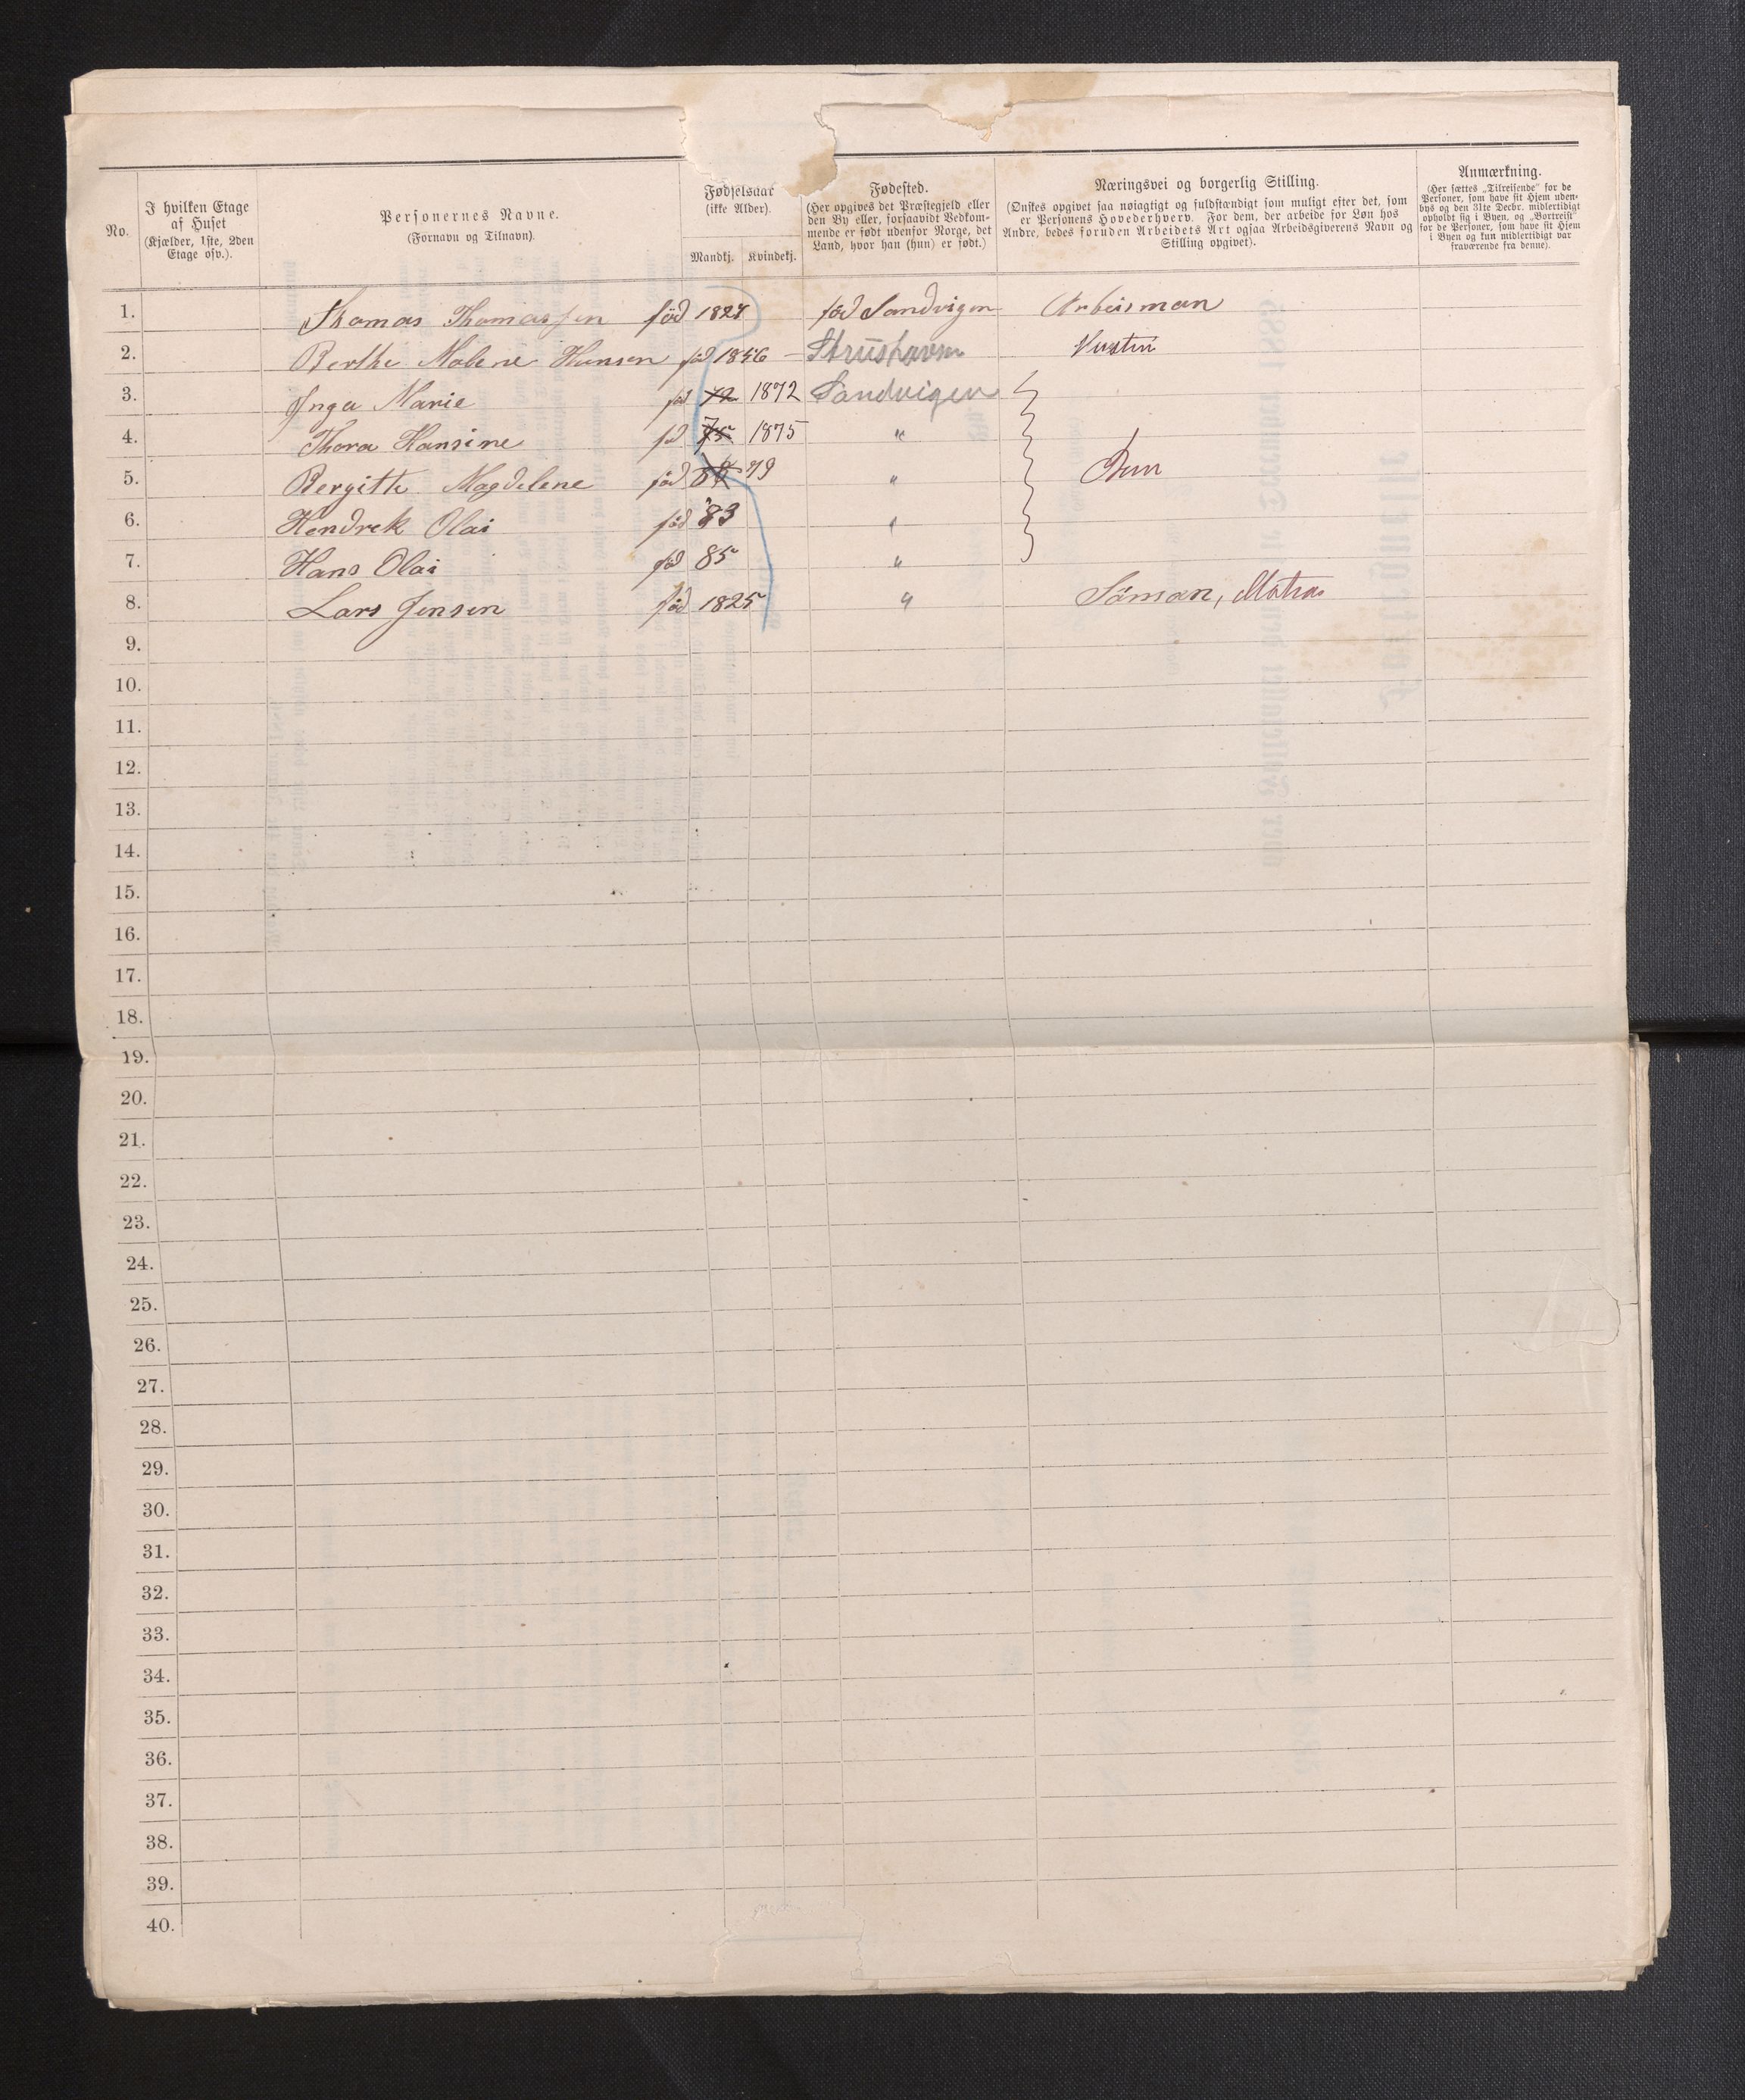 No.
I hvilken Etage
af Huset
(Kjælder, 1ste, 2den
Etage osv.).
Personernes Navne.
(Fornavn og Tilnavn).
Fødselsaar
(ikke Alder).
Mandkj. Kvindekj.
Fødested.
(Her opgives det Præstegjeld eller
den By eller, forsaavidt Vedkom-
mende er født udenfor Norge, det
Land, hvor han (hun) er født.)
Næringsvei og borgerlig Stilling.
(Ønskes opgivet saa nøiagtigt og fuldstændigt som muligt efter det, som
er Personens Hovederhverv. For dem, der arbeide for Løn hos
Andre, bedes foruden Arbeidets Art ogsaa Arbeidsgiverens Navn og
Stilling opgivet).
Anmærkning.
(Her sættes „Tilreisende" for de
Personer, som have sit Hjem uden-
bys og den 31te Decbr. midlertidigt
opholdt sig i Byen, og „Bortreist"
for de Personer, som have sit Hjem
i Byen og kun midlertidigt var
fraværende fra denne).
1. Thomas Thomassen föd 1827 föd Sandvigen Arbeisman
2. Berthe Malene Hansen föd 1846
3. Inga Marie föd 72 1872 Sandvigen
4. Thora Hansine föd 75 1875 "
5. Bergitte Magdelene föd 79 " Børn
6. Hendrek Olai föd 83 "
7. Hans Olai föd 85 "
8. Lars Jensen föd 1825 " Söman, Matros
9.
10.
11.
12.
13.
14.
15.
16.
17.
18.
19.
20.
21.
22.
23.
24.
25.
26.
27.
28.
29.
30.
31.
32.
33.
34.
35.
36.
37.
38.
39.
40.